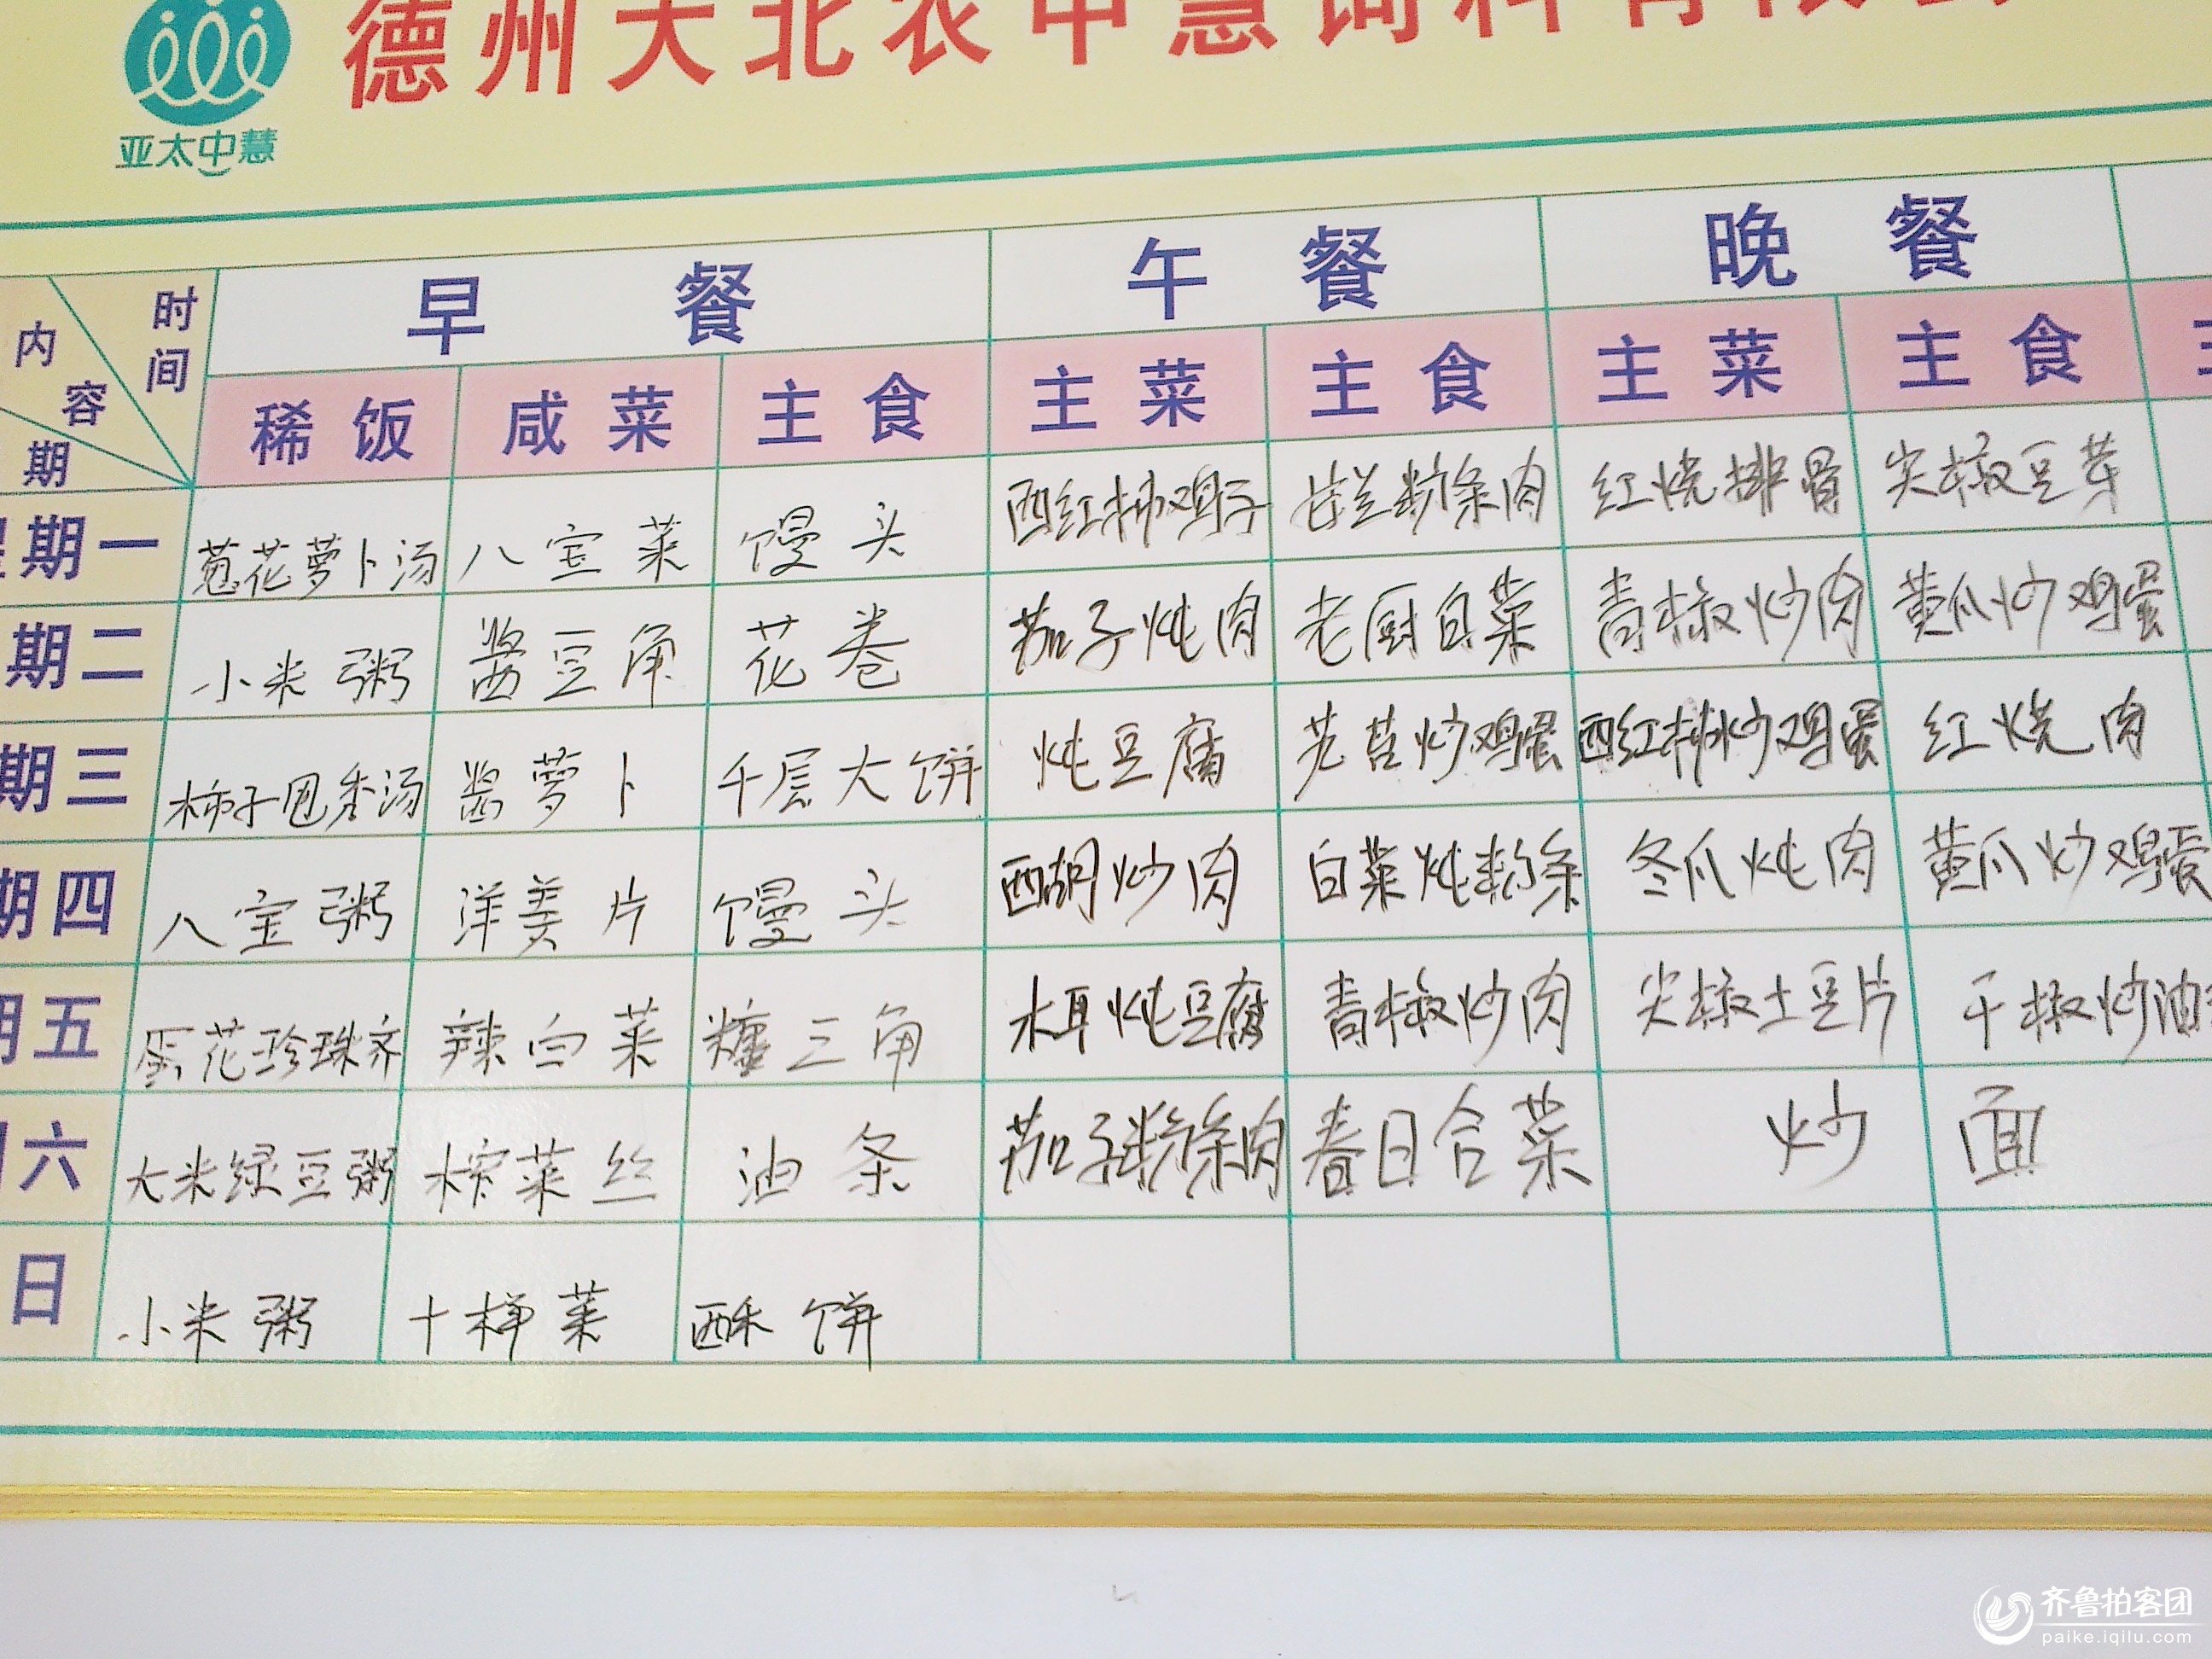 德州大北农中慧饲料有限公
亚太中慧
时间 早餐 午餐 晚餐
内容
期 稀饭 咸菜 主食 主菜 主食 主菜 主食 主
星期一 葱花萝卜汤 八宝菜 馒头 西红柿鸡子 芸兰粉条肉 红烧排骨 尖椒豆芽
期二 小米粥 酱豆角 花卷 茄子炖肉 老厨白菜 青椒炒肉 黄瓜炒鸡蛋
期三 柿子甩秀汤 酱萝卜 千层大饼 炖豆腐 炒鸡蛋 西红柿炒鸡蛋 红烧肉
期四 八宝粥 洋姜片 馒头 西胡炒肉 白菜炖粉条 冬瓜炖肉 黄瓜炒鸡蛋
期五 蛋花珍珠齐 辣白菜 糖三角 木耳炖豆腐 青椒炒肉 尖椒土豆片 干椒炒油
期六 大米绿豆粥 榨菜丝 油条 茄子粉条肉 春日合菜 炒面
日 小米粥 十样菜 酥饼
齐鲁拍客团
paike.iqilu.com